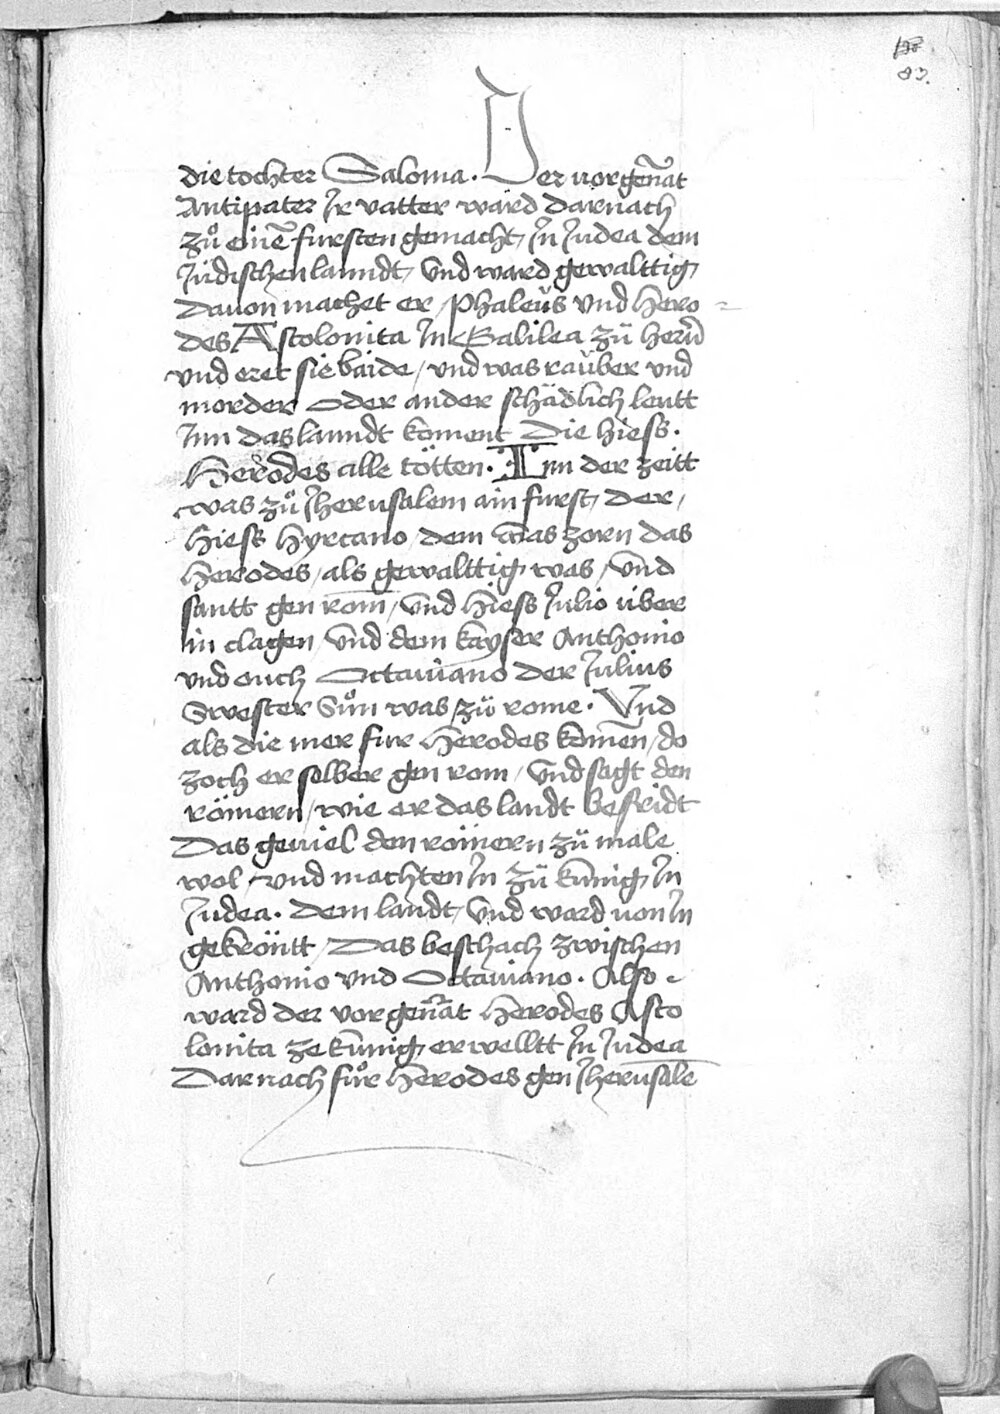 83.
die tochter Saloma. Der vorgen̄at
Antipater Jr vatter ward darnach
zů eine͂ fursten gemacht, Jn Judea dem
Jüdischen lanndt, vnd ward gewalttig,
Dauon machet er, Phaleüs vnd Hero=
des Ascolonita Jn Galilea zü hern̄
vnd eret sie baide, vnd was rauber vnd
morder oder ander schädlich leutt
Jnn das lanndt koment Die hiess.
Herodes alle tötten. Inn der zeitt
was zů Jherusalem ain furst, der,
hiess Hyrcano, dem was zorn das
Herodes, als gewalttig was, vnd
santt gen rom, vnd hiess Julio über
in clagen, vnd dem kayser Anthonio
vnd ouch Octauiano der Julius
Swester Sůn was zü rome. Vnd
als die mer fur Herodes komen, do
zoch er selber gen rom, vnd sagt den
römern, wie er das landt befridt
Das geuiel den römern zü male
wol, vnd machten Jn zü kunig Jn
Judea. dem landt, vnd ward von Jn
gekröntt, Das beschach zwischen
Anthonio vnd Octauiano. Also
ward der vorgen̄at Herodes Asco
lonita ze kunig, erwelltt Jn Judea
Darnach fůr Herodes gen Jherusale͂